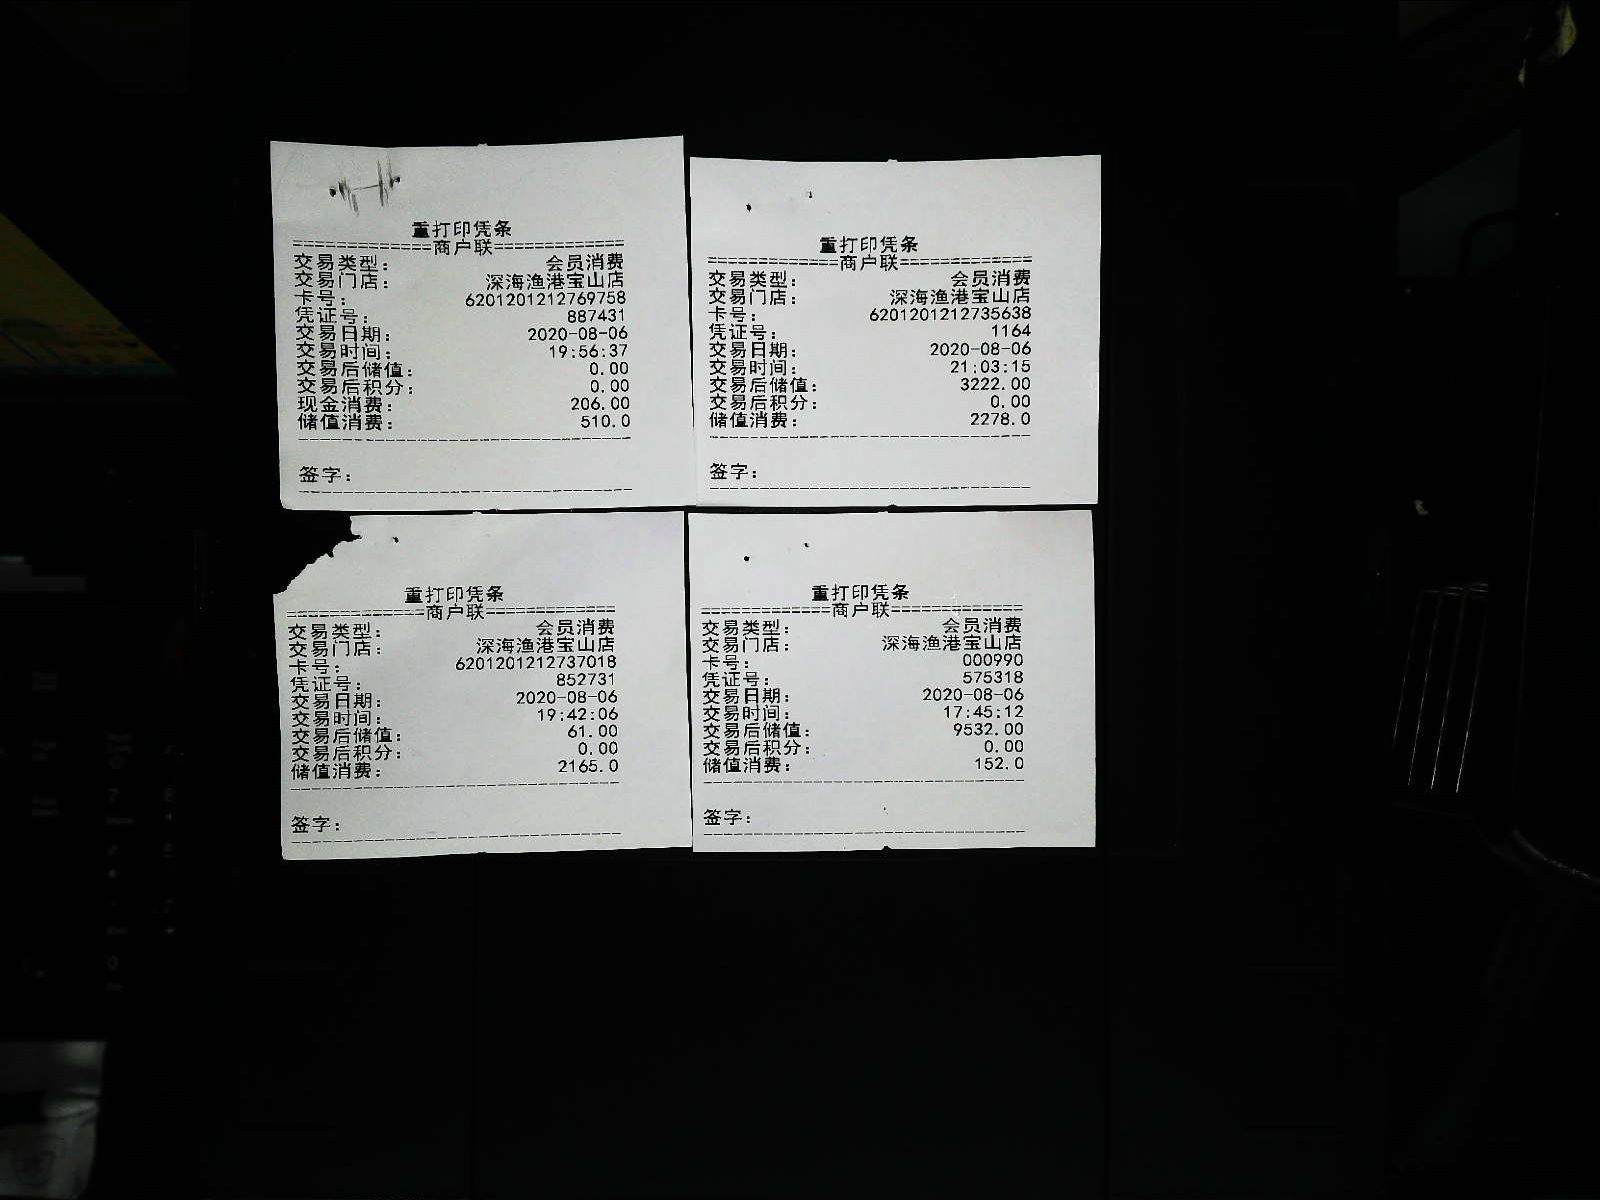 重打印凭条
=============商户联=============
交易类型： 会员消费
交易门店： 深海渔港宝山店
卡号： 6201201212769758
凭证号： 887431
交易日期： 2020-08-06
交易时间： 19:56:37
交易后储值： 0.00
交易后积分： 0.00
现金消费： 206.00
储值消费： 510.0
签字：
重打印凭条
=============商户联=============
交易类型： 会员消费
交易门店： 深海渔港宝山店
卡号： 6201201212735638
凭证号： 1164
交易日期： 2020-08-06
交易时间： 21:03:15
交易后储值： 3222.00
交易后积分： 0.00
储值消费： 2278.0
签字：
重打印凭条
=============商户联=============
交易类型： 会员消费
交易门店： 深海渔港宝山店
卡号： 6201201212737018
凭证号： 852731
交易日期： 2020-08-06
交易时间： 19:42:06
交易后储值： 61.00
交易后积分： 0.00
储值消费： 2165.0
签字：
重打印凭条
=============商户联=============
交易类型： 会员消费
交易门店： 深海渔港宝山店
卡号： 000990
凭证号： 575318
交易日期： 2020-08-06
交易时间： 17:45:12
交易后储值： 9532.00
交易后积分： 0.00
储值消费： 152.0
签字：